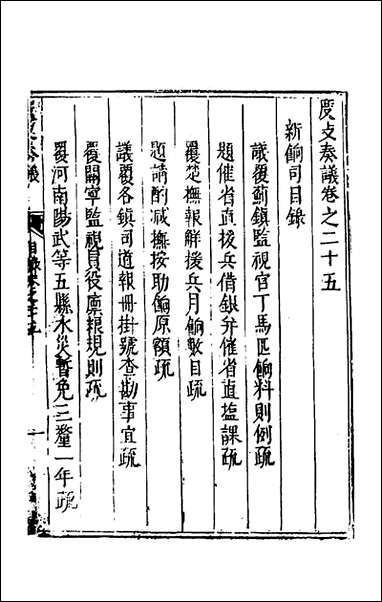 度支奏議卷之二十五
新餉司目錄
議覆薊鎮監視官丁馬匹餉料則例疏
題催省直援兵借銀并催省直鹽課疏
覆楚撫報解援兵月餉數目疏
題請酌減撫按助餉原額疏
議覆各鎮司道報冊掛號查勘事宜疏
覆關寧監視員役廩糧規則疏
覆河南陽武等五縣水災暫免三釐一年疏
度支奏議
目錄卷之二十五
一